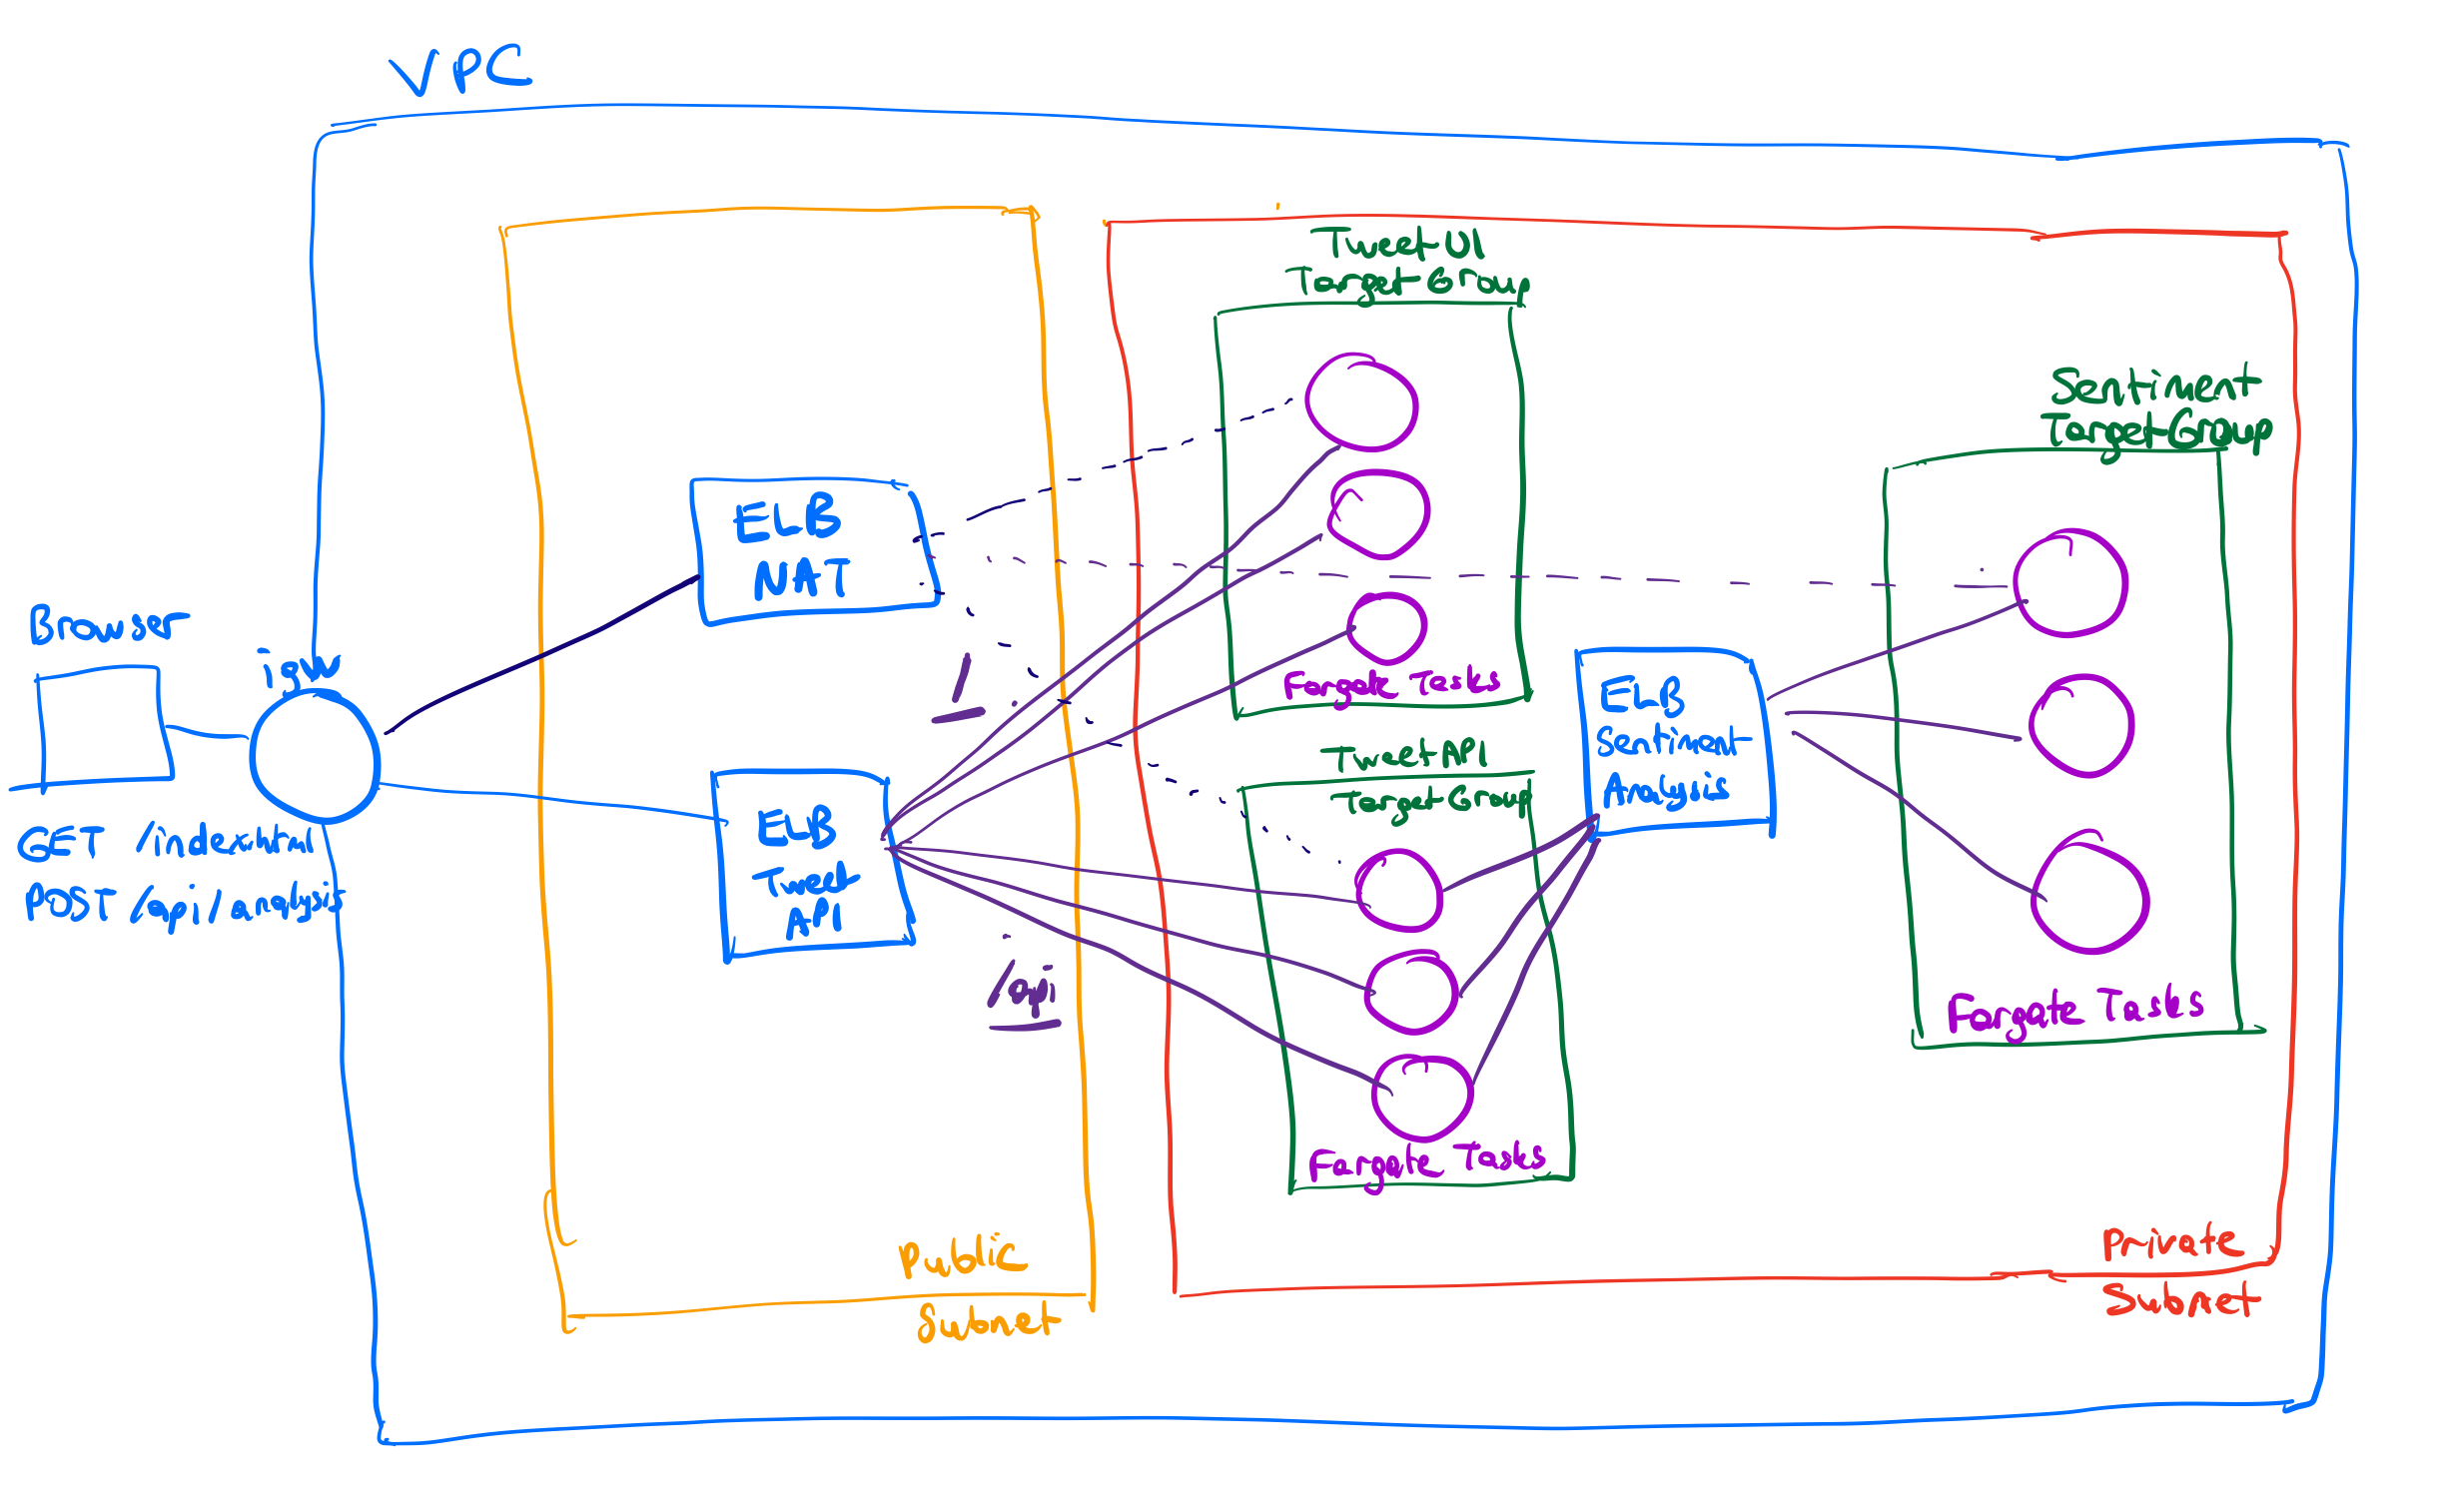 VPC
Browser
igw
GET /index.html
POST /api/analysis
ELB
NAT
ELB
Tweet
API
/
/api
TweetUI
TargetGroup
Fargate Tasks
TweetAPI
Target Group
Fargate Tasks
ELB
Sentiment
Analysis
Sentiment
TargetGroup
Fargate Tasks
Public
Subnet
Private
Subnet